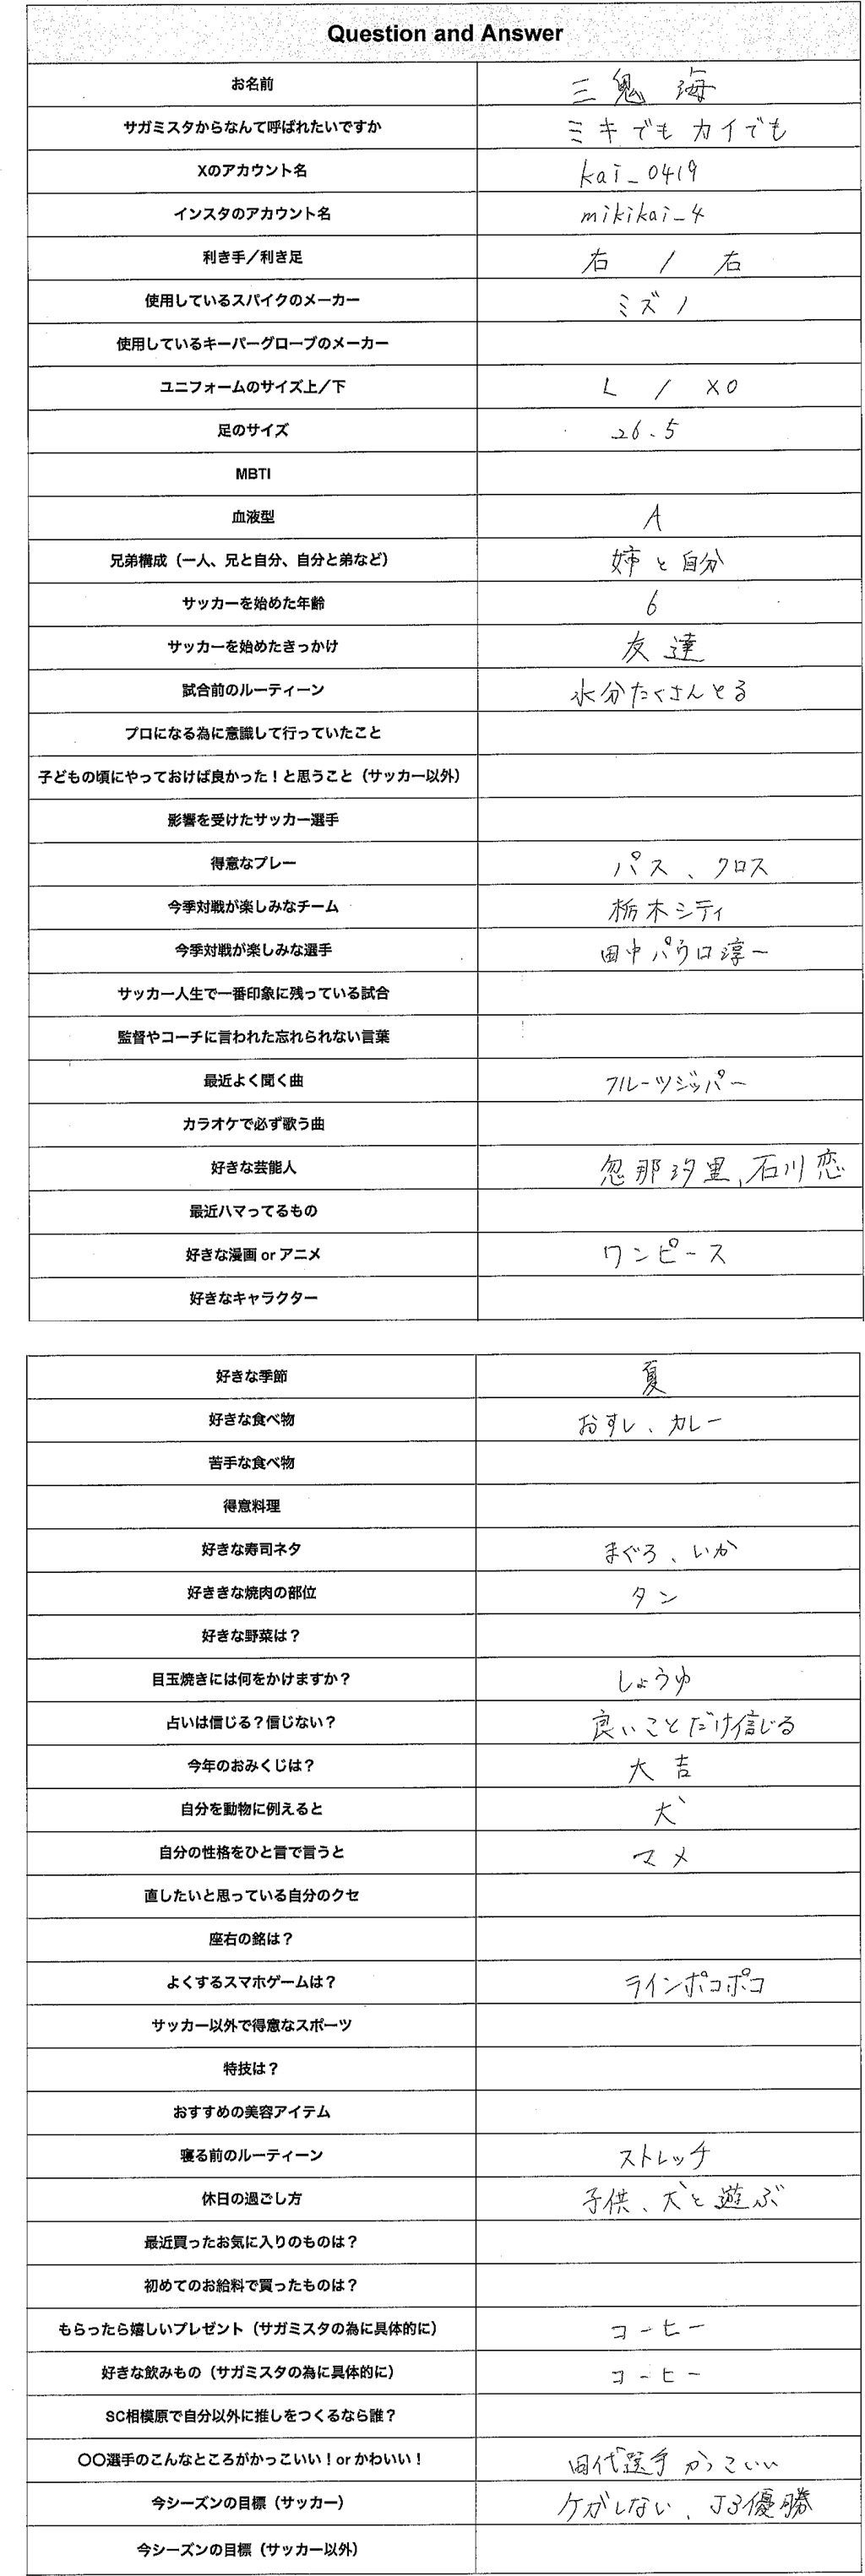 Question and Answer
お名前 三鬼 海
サガミスタからなんて呼ばれたいですか ミキでも カイでも
Xのアカウント名 kai_0419
インスタのアカウント名 mikikai_4
利き手／利き足 右 / 右
使用しているスパイクのメーカー ミズノ
使用しているキーパーグローブのメーカー
ユニフォームのサイズ上／下 L / XO
足のサイズ 26.5
MBTI
血液型 A
兄弟構成（一人、兄と自分、自分と弟など） 姉と自分
サッカーを始めた年齢 6
サッカーを始めたきっかけ 友達
試合前のルーティーン 水分たくさんとる
プロになる為に意識して行っていたこと
子どもの頃にやっておけば良かった！と思うこと（サッカー以外）
影響を受けたサッカー選手
得意なプレー パス、クロス
今季対戦が楽しみなチーム 栃木シティ
今季対戦が楽しみな選手 田中パウロ淳一
サッカー人生で一番印象に残っている試合
監督やコーチに言われた忘れられない言葉
最近よく聞く曲 フルーツジッパー
カラオケで必ず歌う曲
好きな芸能人 忽那汐里、石川恋
最近ハマってるもの
好きな漫画 or アニメ ワンピース
好きなキャラクター
好きな季節 夏
好きな食べ物 おすし、カレー
苦手な食べ物
得意料理
好きな寿司ネタ まぐろ、いか
好ききな焼肉の部位 タン
好きな野菜は？
目玉焼きには何をかけますか？ しょうゆ
占いは信じる？信じない？ 良いことだけ信じる
今年のおみくじは？ 大吉
自分を動物に例えると 犬
自分の性格をひと言で言うと マメ
直したいと思っている自分のクセ
座右の銘は？
よくするスマホゲームは？ ラインポコポコ
サッカー以外で得意なスポーツ
特技は？
おすすめの美容アイテム
寝る前のルーティーン ストレッチ
休日の過ごし方 子供、犬と遊ぶ
最近買ったお気に入りのものは？
初めてのお給料で買ったものは？
もらったら嬉しいプレゼント（サガミスタの為に具体的に） コーヒー
好きな飲みもの（サガミスタの為に具体的に） コーヒー
SC相模原で自分以外に推しをつくるなら誰？
〇〇選手のこんなところがかっこいい！or かわいい！ 田代選手 かっこいい
今シーズンの目標（サッカー） ケガしない、J3優勝
今シーズンの目標（サッカー以外）